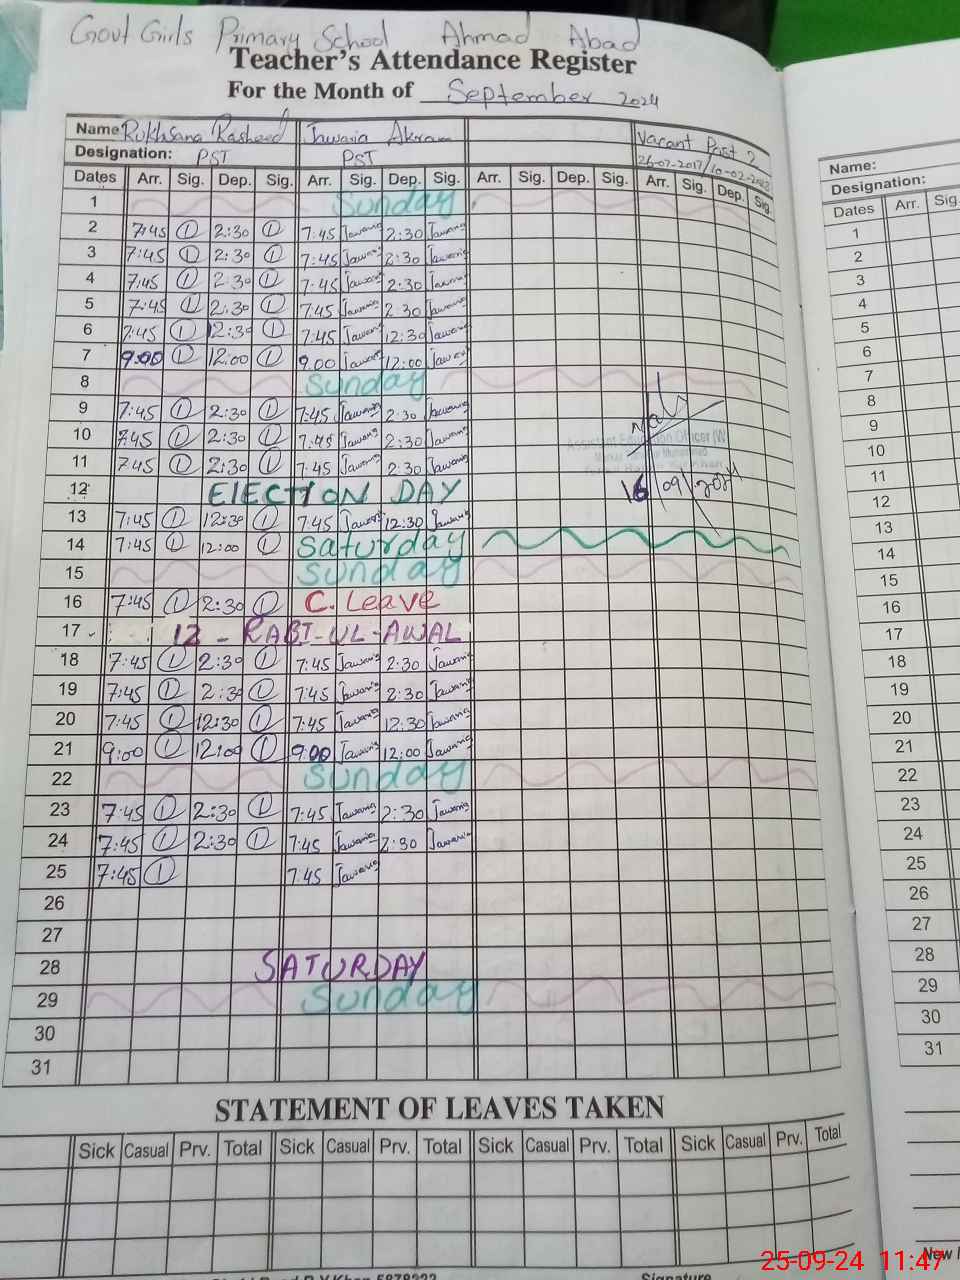 Govt Girls Primary School Ahmad Abad
Teacher's Attendance Register
For the Month of September 2024
Name Rukhsana Rasheed Jawaria Akram Vacant Post 2
Designation: PST PST 26-07-2017/10-02-2018
Dates Arr. Sig. Dep. Sig. Arr. Sig. Dep. Sig. Arr. Sig. Dep. Sig. Arr. Sig. Dep. Sig.
1 Sunday
2 7:45 1 2:30 1 7:45 Jawaria 2:30 Jawaria
3 7:45 1 2:30 1 7:45 Jawaria 2:30 Jawaria
4 7:45 1 2:30 1 7:45 Jawaria 2:30 Jawaria
5 7:45 1 2:30 1 7:45 Jawaria 2:30 Jawaria
6 7:45 1 12:30 1 7:45 Jawaria 12:30 Jawaria
7 9:00 1 12:00 1 9:00 Jawaria 12:00 Jawaria
8 Sunday
9 7:45 1 2:30 1 7:45 Jawaria 2:30 Jawaria
10 7:45 1 2:30 1 7:45 Jawaria 2:30 Jawaria
Assistant Education Officer (W
11 7:45 1 2:30 1 7:45 Jawaria 2:30 Jawaria
12 ElECTiON DAY 16/09/2024
13 7:45 1 12:30 1 7:45 Jawaria 12:30 Jawaria
14 7:45 1 12:00 1 Saturday
15 Sunday
16 7:45 1 2:30 1 C. Leave
17 12 - RABI-UL-AWAL
18 7:45 1 2:30 1 7:45 Jawaria 2:30 Jawaria
19 7:45 1 2:30 1 7:45 Jawaria 2:30 Jawaria
20 7:45 1 12:30 1 7:45 Jawaria 12:30 Jawaria
21 9:00 1 12:00 1 9:00 Jawaria 12:00 Jawaria
22 Sunday
23 7:45 1 2:30 1 7:45 Jawaria 2:30 Jawaria
24 7:45 1 2:30 1 7:45 Jawaria 2:30 Jawaria
25 7:45 1 7:45 Jawaria
26
27
28 SATURDAY
29 Sunday
30
31
STATEMENT OF LEAVES TAKEN
Sick Casual Prv. Total Sick Casual Prv. Total Sick Casual Prv. Total Sick Casual Prv. Total
Signature
Name:
Designation:
Dates Arr. Sig.
1
2
3
4
5
6
7
8
9
10
11
12
13
14
15
16
17
18
19
20
21
22
23
24
25
26
27
28
29
30
31
New
25-09-24 11:47